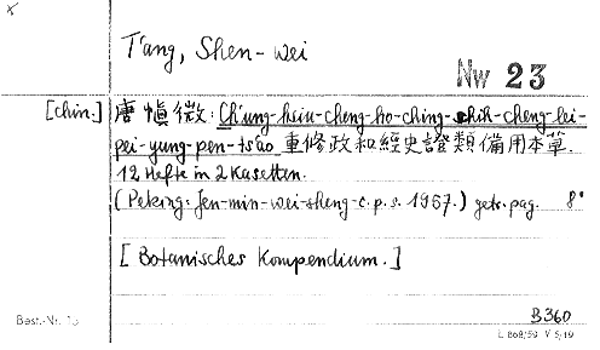 T'ang, Shen-wei
Nw 23
[chin.] 唐慎微: Ch'ung-hsiu-cheng-ho-ching-shih-cheng-lei-
pei-yung-pen-ts'ao 重修政和經史證類備用本草.
12 Hefte in 2 Kasetten.
(Peking: Jen-min-wei-sheng-c.p.s. 1957.) getr. pag. 8°
[Botanisches Kompendium.]
B360
Best.-Nr.